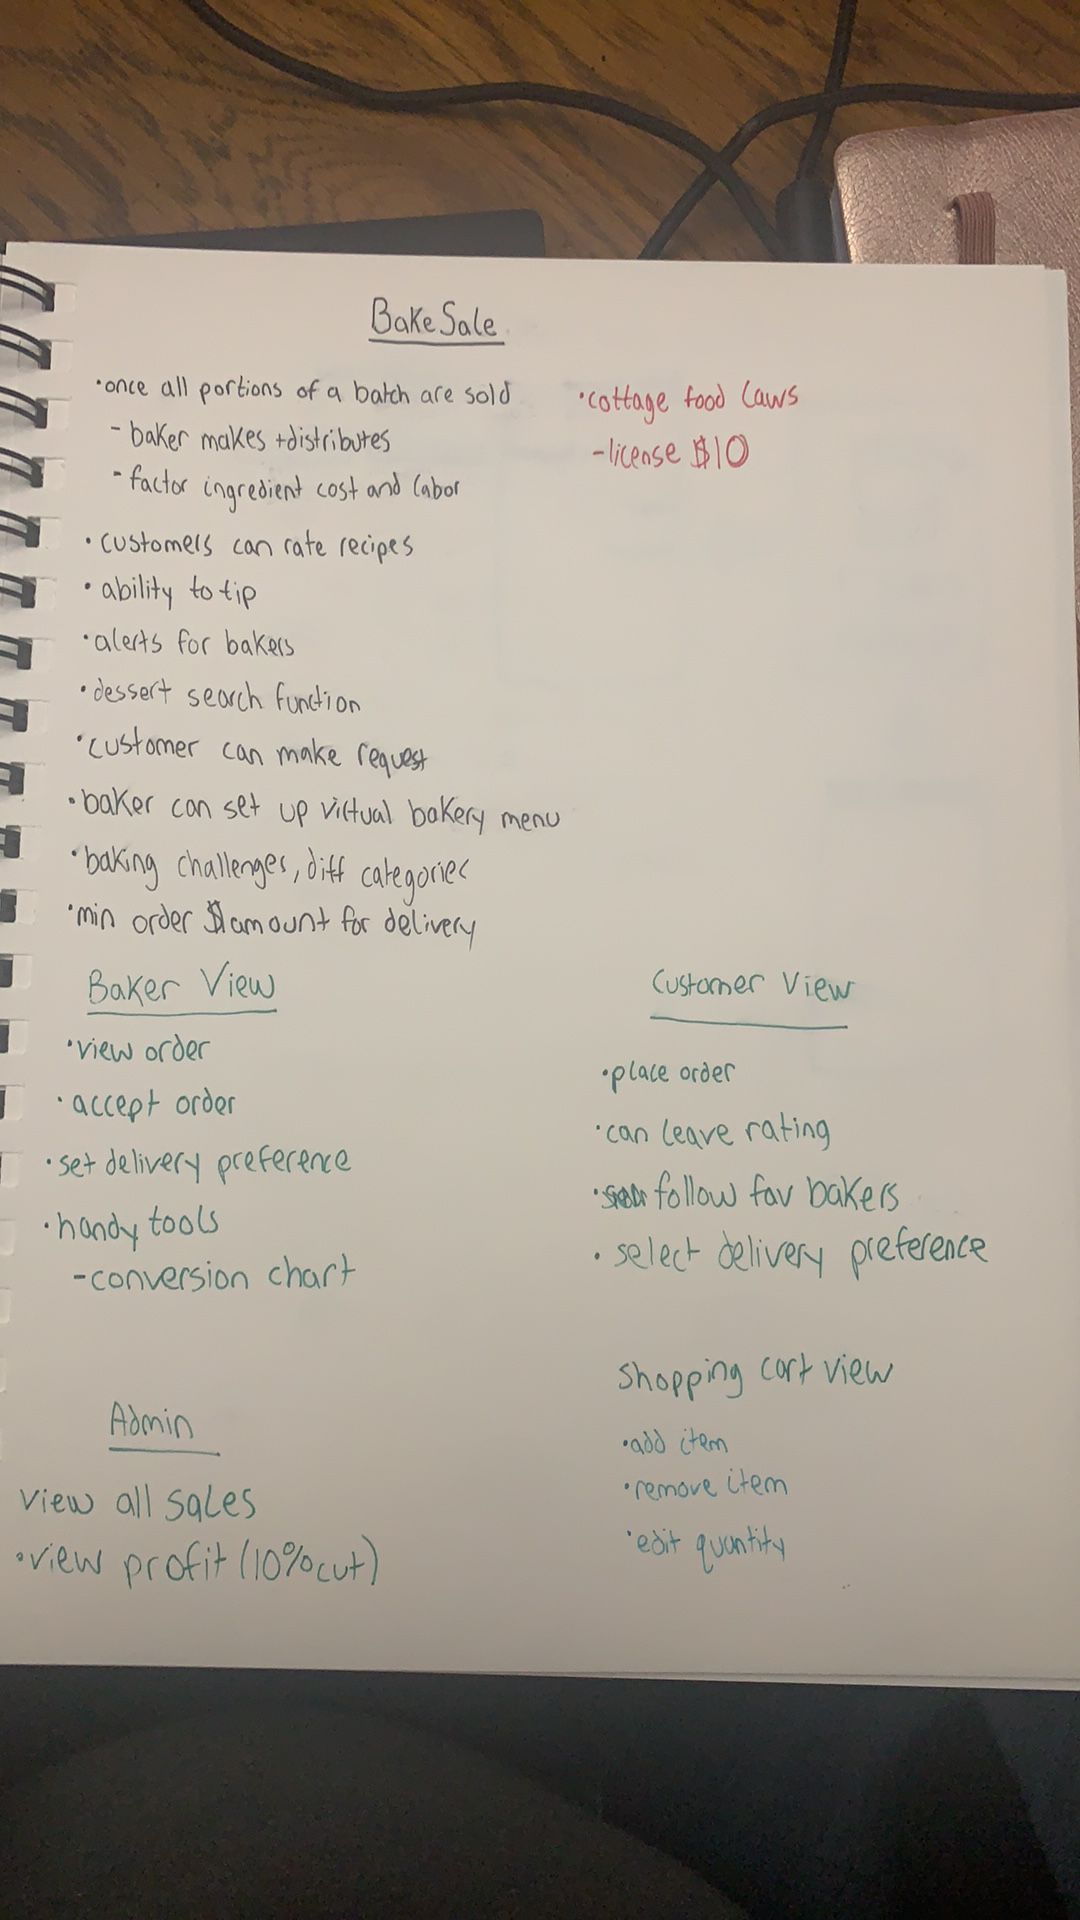 BakeSale
•once all portions of a batch are sold
- baker makes + distributes
- factor ingredient cost and labor
•customers can rate recipes
•ability to tip
•alerts for bakers
•dessert search function
•customer can make request
•baker can set up virtual bakery menu
•baking challenges, diff categories
•min order $ amount for delivery
•cottage food laws
- license $10
Baker View
•view order
•accept order
•set delivery preference
•handy tools
- conversion chart
Customer View
•place order
•can leave rating
•follow fav bakers
•select delivery preference
Shopping cart view
•add item
•remove item
•edit quantity
Admin
view all sales
•view profit (10% cut)